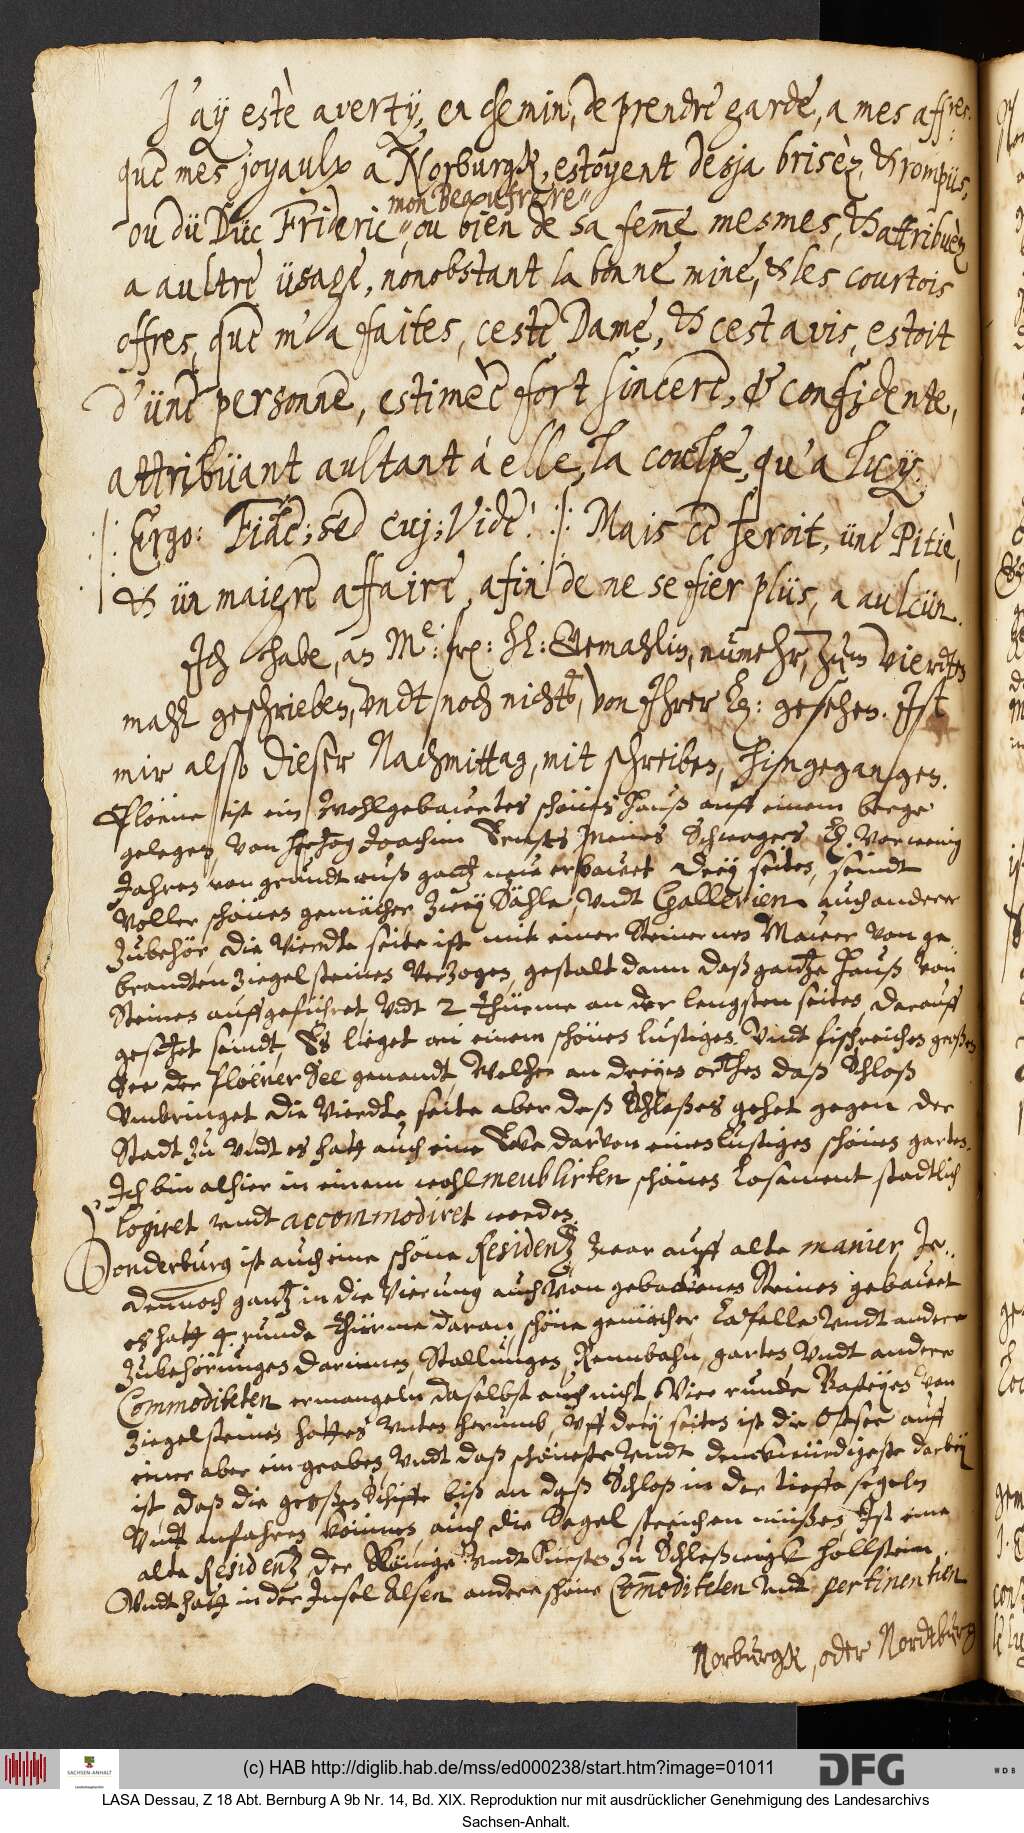 J'aÿ estè avertÿ, en chemin, de prendre garde, a mes aff:res
que mes joyaulx a Norburgk, estoyent desja brisèz, & rompüs,
mon Beaufrere
ou dü Düc Frideric, ou bien de sa fem̃e mesmes, & attribuèz
a aultre üsage, nonobstant la bonne mine, & les courtois
offres, que m'a faites, ceste Dame, & cest avis, estoit
d'üne personne, estimèe fort sincere, & confidente,
attribüant aultant á elle, la coulpe, qu'a luÿ.
Ergo: Fide; sed cuj; Vide! Mais ce seroit, üne Pitiè,
& ün maigre affaire, afin de ne se fier plüs, a aulcün.
Jch habe, an Me: frx: h: Gemahlin, nůmehr, zum vierdten
mahl geschrieben, vndt noch nichts, von Jhrer L: gesehen. Jst
mir also dieser Nachmittag, mit schreiben, hingegangen.
Ploene ist ein wohlgebauetes schönes Hauß auff einem berge
gelegen, von Hertzog Joachim Ernsts meines Schwagers L. vor wenig
Jahren von grundt auß gantz neu erbauet drey seiten, seindt
voller schönen gemächer zwey Sähle, vndt Gallerien auch anderer
zubehör die Vierdte seite ist mit einer Steinernen Mauer von ge-
brandten ziegelsteinen verzogen, gestalt dann daß gantze hauß von
Steinen auffgeführet vndt 2 Thürme an der lengsten seiten, darauff
gesetzet seindt, Es lieget an einem schönen lustigen vndt fischreichen großen
See der Ploëner See genandt, Welcher an dreyen orthen daß Schloß
vmbringet die Vierdte seite aber deß Schloßes gehet gegen der
Stadt zu vndt es hatt auch eine darvon einen lustigen schönen garten.
Jch bin alhier in einem wohl meublirten schönen Losament stadtlich
logiret vndt accommodiret worden.
Sonderburg ist auch eine schöne Residentz, zwar auff alte manier, Je-
dennoch gantz in die Vierung auch von gebackenen Steinen gebauet
es hatt 4 runde thürme daran, schöne gemächer Capelle vndt andere
zubehörungen darinnen, Stallungen, Rennbahn, garten vndt andere
Commoditeten ermangeln daselbst auch nicht, Vier runde Basteyen von
ziegelsteinen hatt es vnten herumb, vff drey seiten ist die Ostsee auff
einer aber ein graben, vndt daß schöneste vndt denckwürdigeste darbey
ist, daß die großen Schiffe biß an daß Schloß in der tieffe segeln
vndt anfahren können, auch die Segel streichen müßen, Jst eine
alte Residentz der Könige vndt Fürsten zu Schleßwigk hollstein.
Vndt hatt in der Jnsel Alsen andere schöne Com̃oditeten vndt pertinentien
Norburgk, oder Nordtburg
(c) HAB http://diglib.hab.de/mss/ed000238/start.htm?image=01011
SACHSEN-ANHALT
DFG
WDB
LASA Dessau, Z 18 Abt. Bernburg A 9b Nr. 14, Bd. XIX. Reproduktion nur mit ausdrücklicher Genehmigung des Landesarchivs
Sachsen-Anhalt.